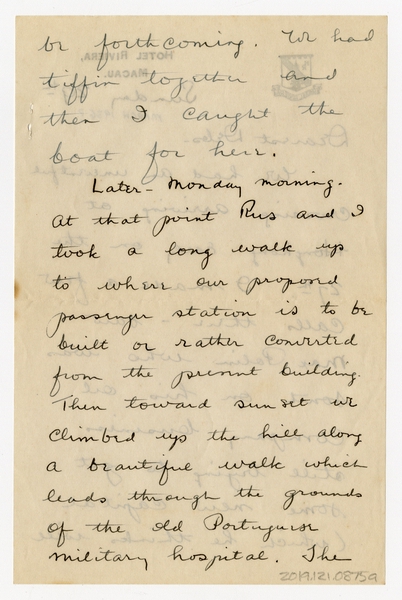 be forthcoming. We had
tiffin together and
then I caught the
boat for here.
Later - Monday morning.
At that point Rus and I
took a long walk up
to where our proposed
passenger station is to be
built or rather converted
from the present building.
Then toward sunset we
climbed up the hill along
a beautiful walk which
leads through the grounds
of the old Portuguese
military hospital. The
2019.121.0875a